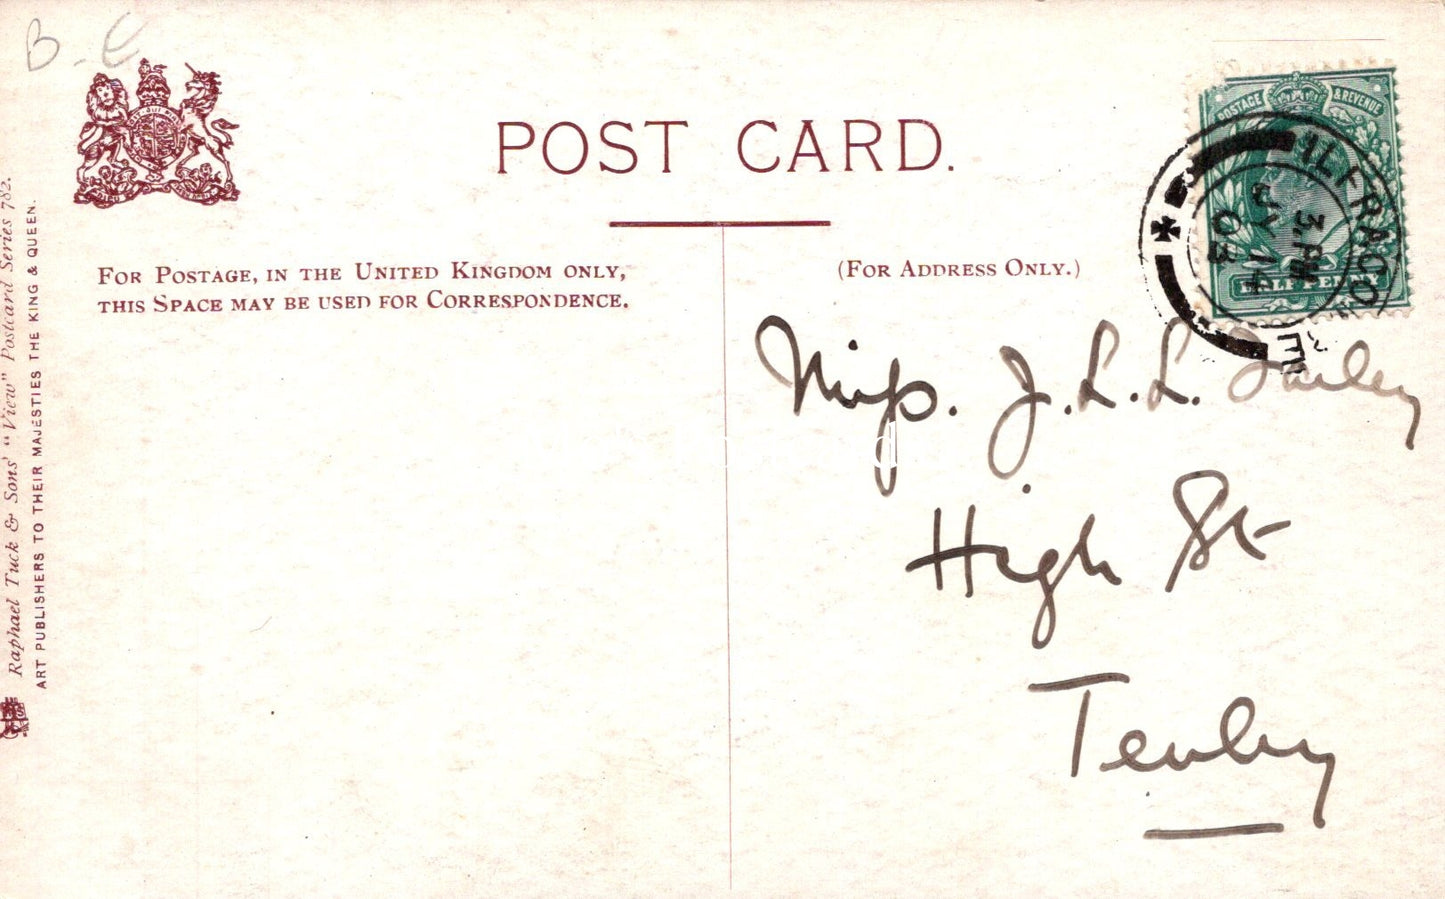 B. E
POST CARD.
FOR POSTAGE, IN THE UNITED KINGDOM ONLY,
THIS SPACE MAY BE USED FOR CORRESPONDENCE.
(FOR ADDRESS ONLY.)
POSTAGE & REVENUE
HALF PENNY
ILFRACOM
3. PM
JY 14
03
Miss. J. L. L.
High St
Tenby
Raphael Tuck & Sons' "View" Postcard Series 782.
ART PUBLISHERS TO THEIR MAJESTIES THE KING & QUEEN.